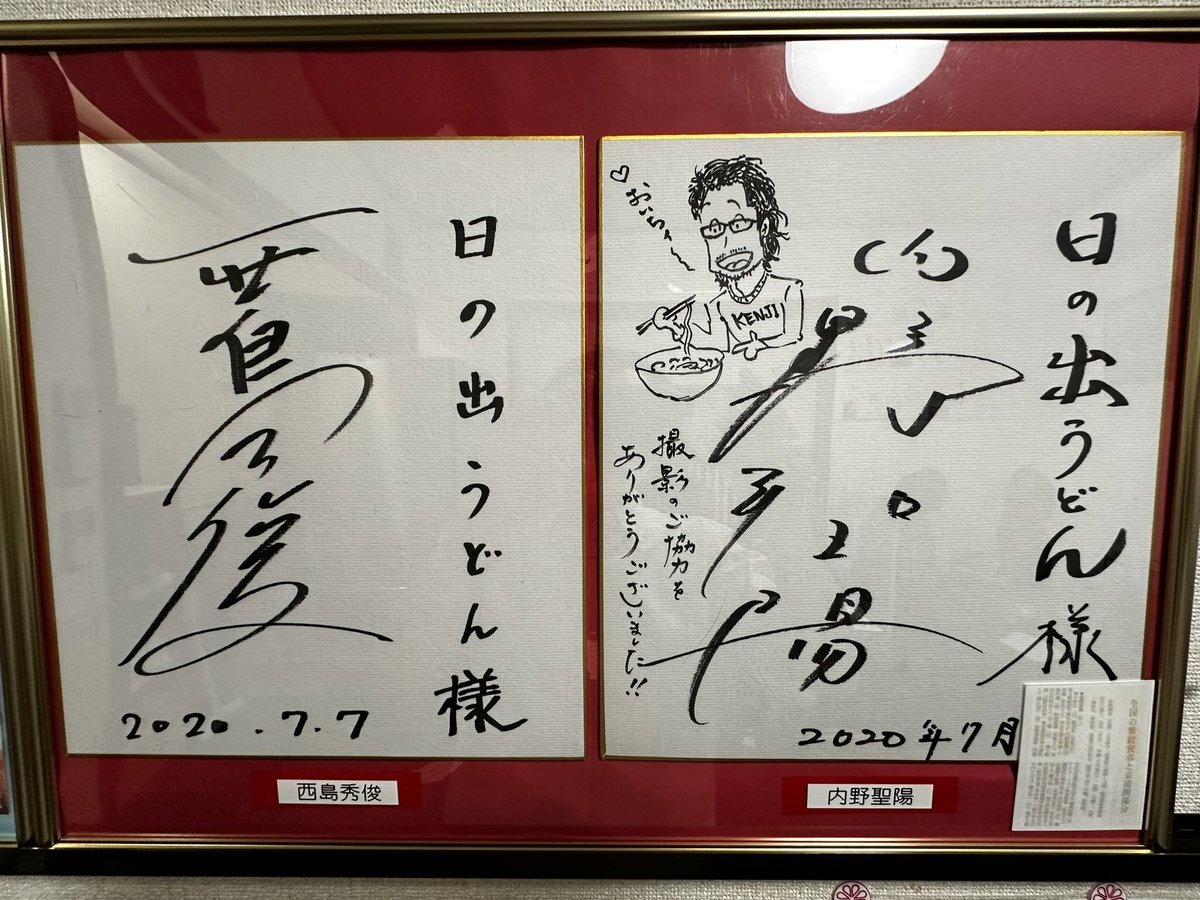 日の出うどん様
西島秀俊
2020.7.7
西島秀俊
日の出うどん様
内野聖陽
KENJI
撮影のご協力を
ありがとうございました!!
2020年7月
内野聖陽